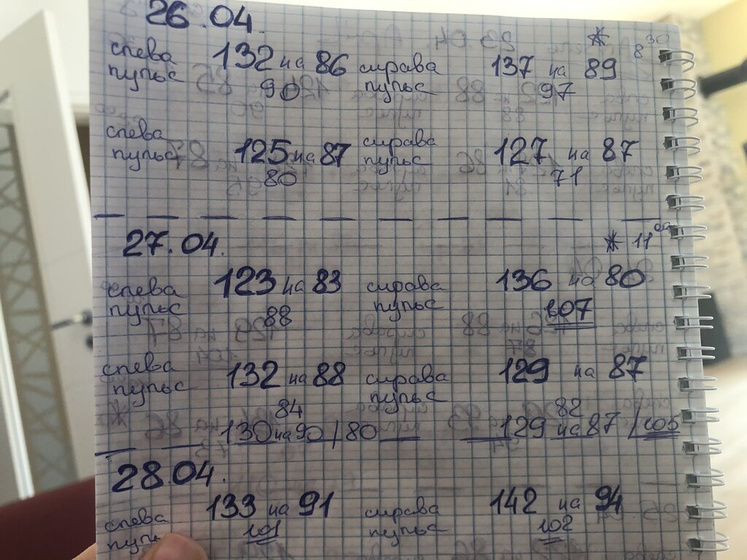 26.04.
* 8 30
слева 132 на 86 справа 137 на 89
пульс 90 пульс 97
слева 125 на 87 справа 127 на 87
пульс 80 пульс 71
27.04. * 11 00
слева 123 на 83 справа 136 на 80
пульс 88 пульс 107
слева 132 на 88 справа 129 на 87
пульс 84 пульс 82
130 на 90 / 80 129 на 87 / 105
28.04.
слева 133 на 91 справа 142 на 94
пульс 101 пульс 102